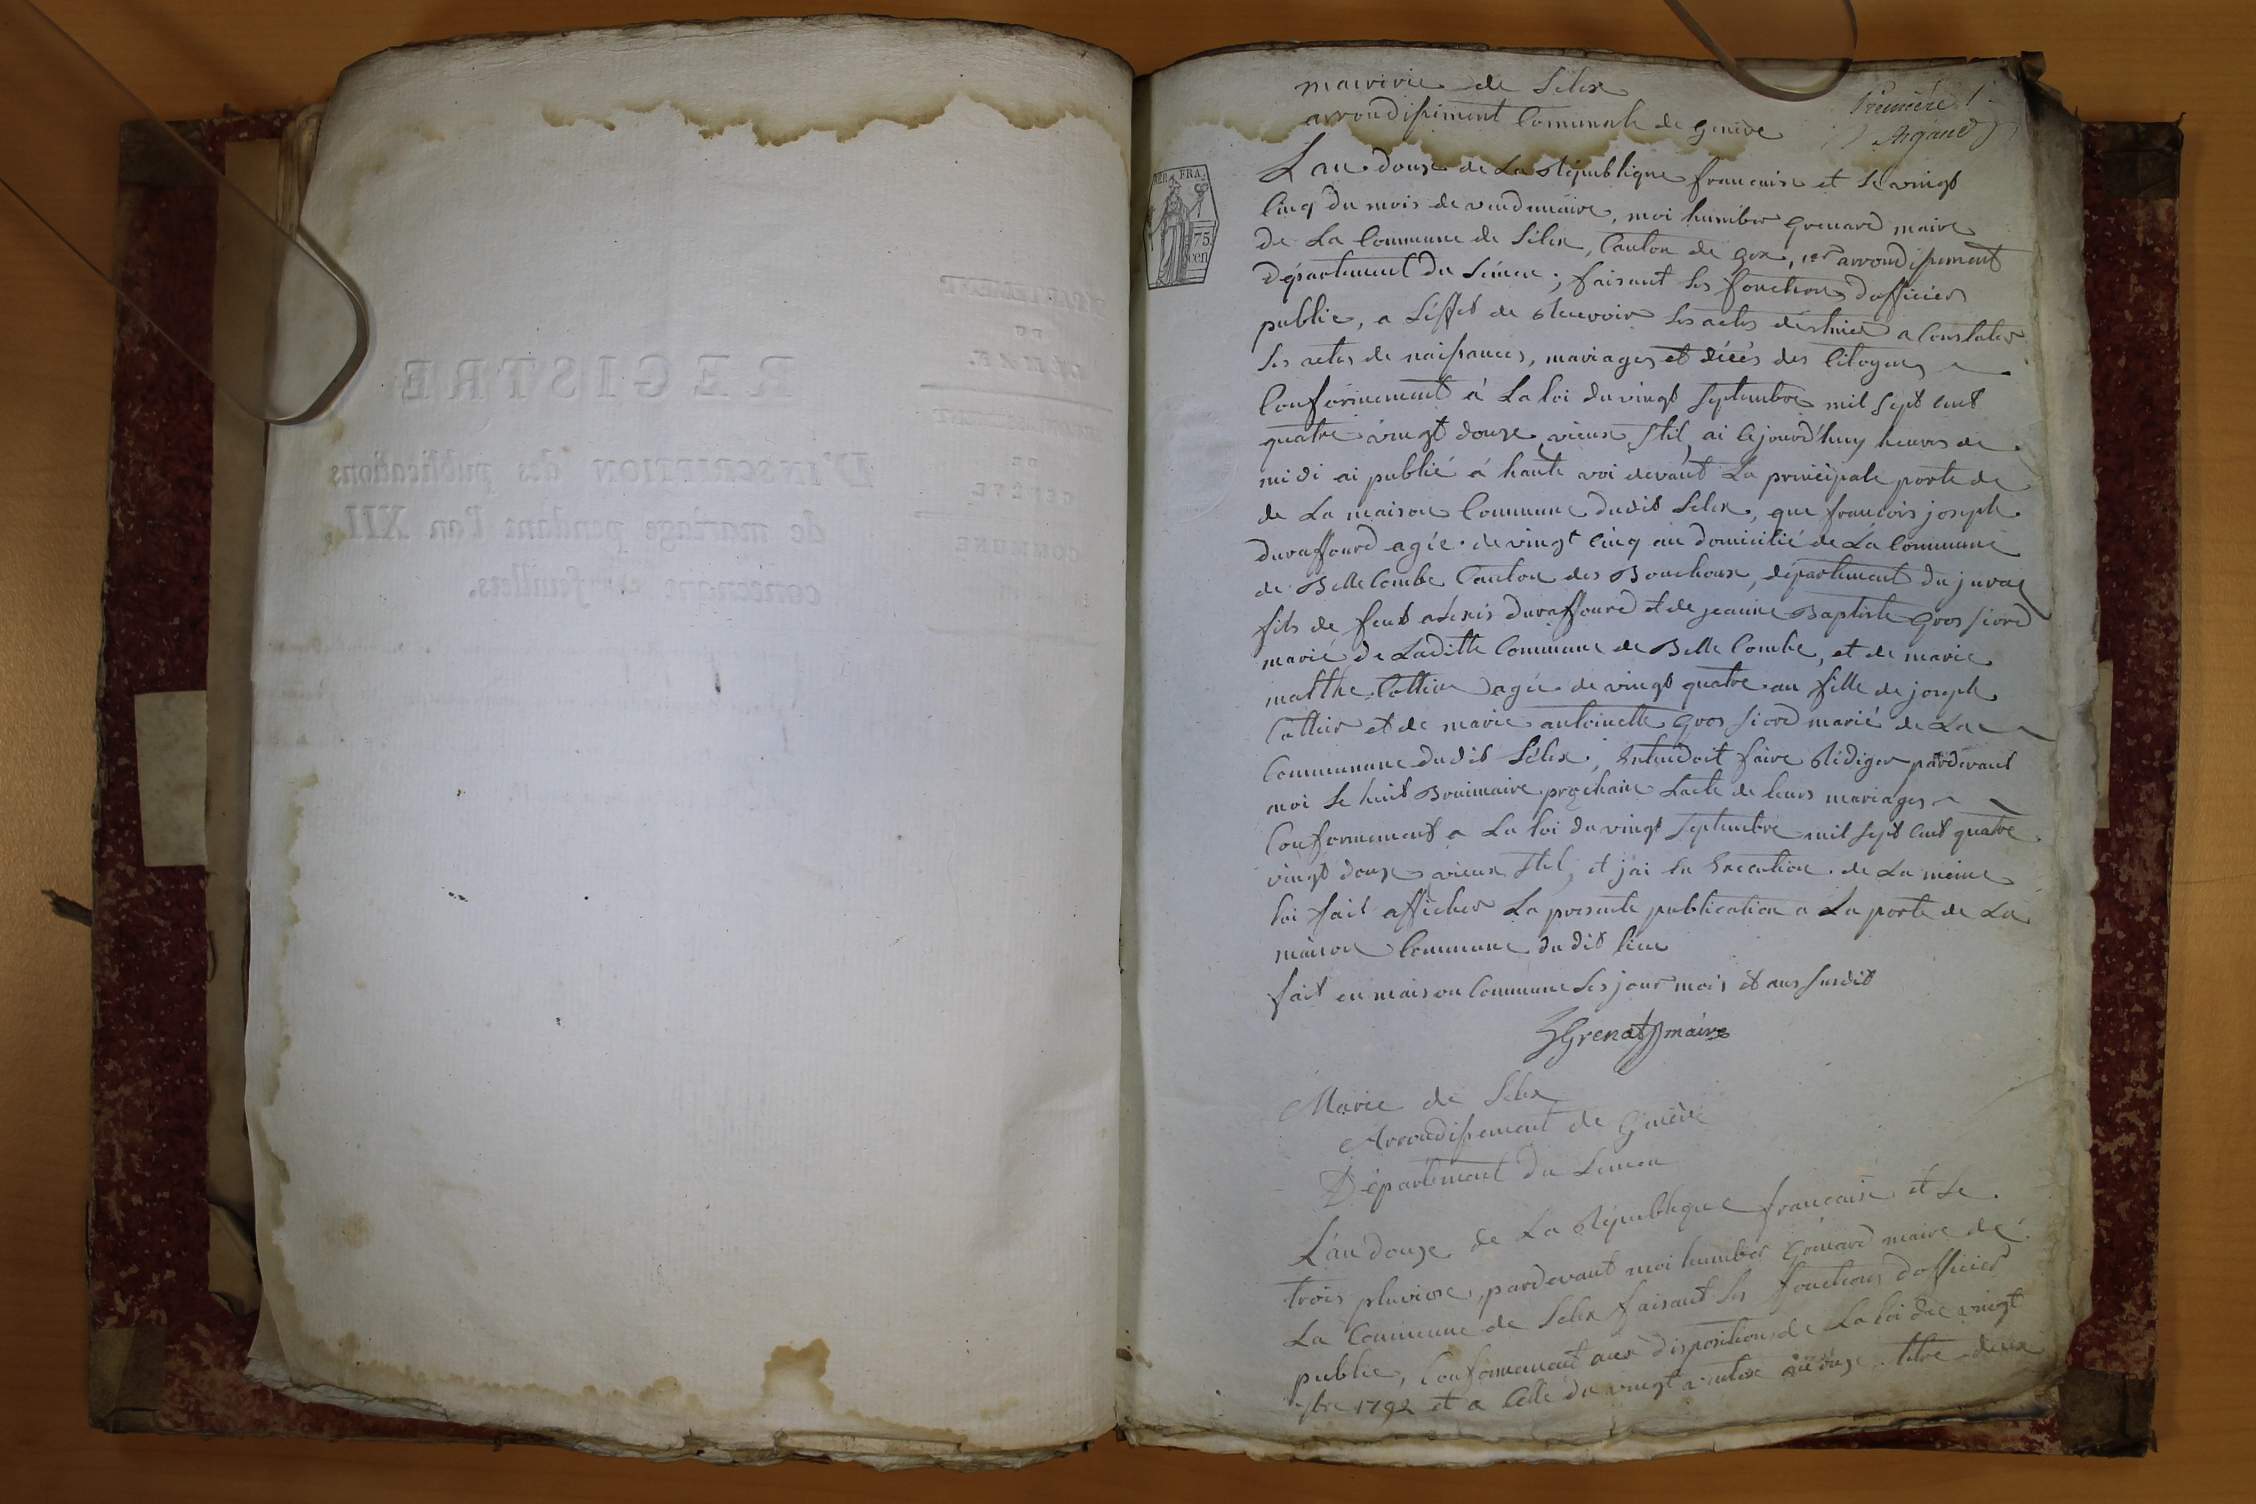 DÉPARTEMENT
DU
LÉMAN.
DE
GENÈVE
COMMUNE
REGISTRE
D'INSCRIPTION des publications
de mariage pendant l'an XII
contenant feuillets.
mairie de Lelex
arrondissiment Comunale de genève
Première 1
Argand
RÉP. FRA.
75
cen
L'an douze de La République francaise et le vingt
Cinq du mois de vendemiaire, moi humber Grenard maire
De La Commune de Lelex, Canton de Gex, 1er arrondissement
Département du Léman ; faisant les fonctions d'officier
public, a L'effet de Recevoir les actes destinés a Constater
les actes de naissances, mariages et décés des Citoyens
Conformement à La loi du vingt Septembre mil Sept cent
quatre vingt douze vieux stil, ai cejourd'huy heures de
midi ai publié à haute voi devant La principale porte de
de La maison Commune dudit Lelex, que francois joseph
Duraffourd agée de vingt Cinq an domicilié de La Commune
de Belle Combe Canton des Bouchoux, département du jura
fils de feut alexis Duraffourd et de jeanne Baptiste Gros fiord
marié de Laditte Commune de Belle Combe, et de marie
matthe Cottier agée de vingt quatre an fille de joseph
Cottier et de marie antoinette Gros fiord marié de La
Communune dudit Lélex, Entendoit faire Rédiger pardevant
moi le huit Brumaire prochain L'acte de leurs mariages
Conformement a La loi du vingt Septembre mil Sept Cent quatre
vingt douze vieux stil, et j'ai en Execution de La meme
loi fait afficher La presente publication a La porte de La
maison Commune du dit lieu
fait en maison Commune les jour mois et ans susdit
Grenat maire
Marie de Lelex
Arrondissement de Genève
Département du Leman
L'an douze de La République francaise et le
trois pluviose, pardevant moi humber Grenard maire de
La Commune de Lelex faisant les fonctions d'officier
public, Conformement aux dispositions de La loi du vingt
7bre 1792 et a Celle du vingt titre deux